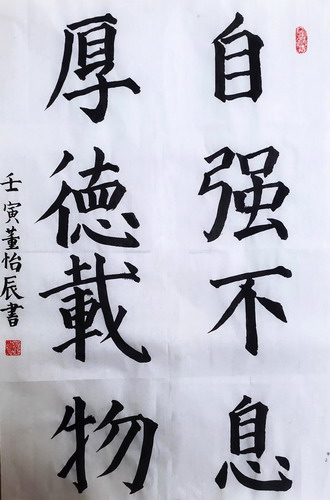 自强不息
厚德載物
壬寅董怡辰書